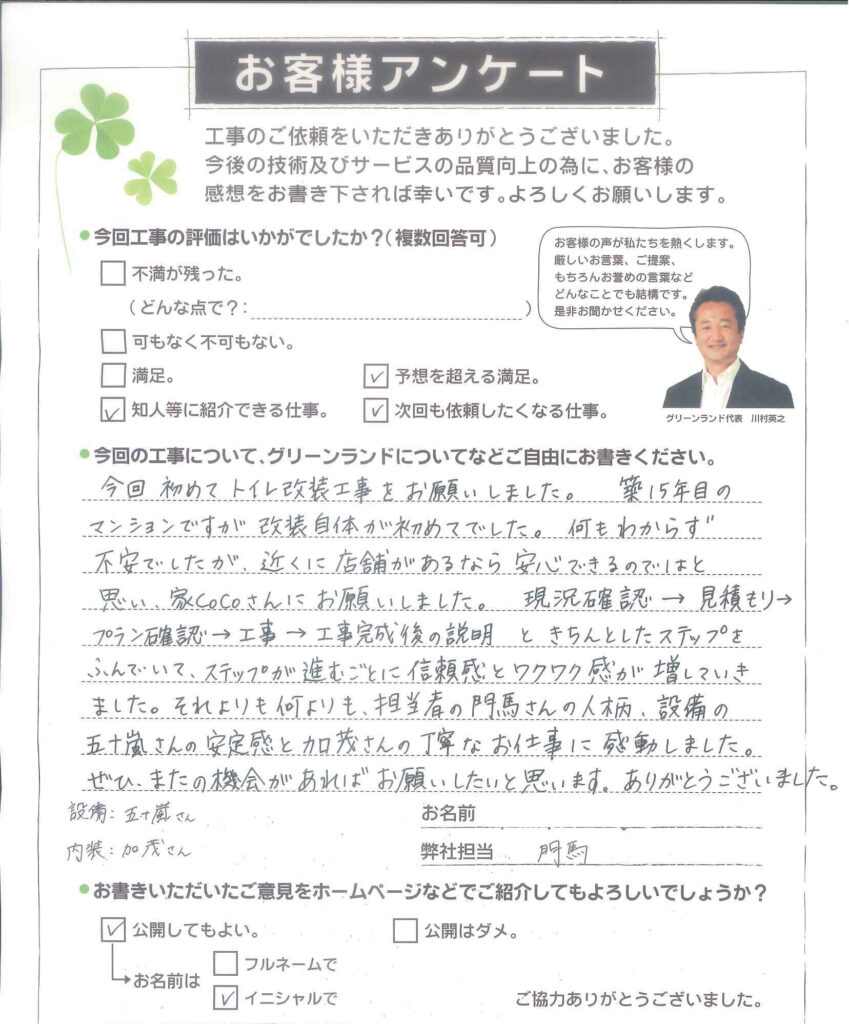 お客様アンケート
工事のご依頼をいただきありがとうございました。
今後の技術及びサービスの品質向上の為に、お客様の
感想をお書き下されば幸いです。よろしくお願いします。
今回工事の評価はいかがでしたか？（複数回答可）
不満が残った。
（どんな点で？：　　　　）
可もなく不可もない。
満足。
予想を超える満足。
知人等に紹介できる仕事。
次回も依頼したくなる仕事。
お客様の声が私たちを熱くします。
厳しいお言葉、ご提案、
もちろんお誉めの言葉など
どんなことでも結構です。
是非お聞かせください。
グリーンランド代表　川村英之
今回の工事について、グリーンランドについてなどご自由にお書きください。
今回 初めてトイレ改装工事をお願いしました。　築15年目の
マンションですが 改装自体が初めてでした。 何もわからず
不安でしたが、近くに店舗があるなら 安心できるのではと
思い、家CoCoさんにお願いしました。　現況確認→見積もり→
プラン確認→工事→工事完成後の説明 ときちんとしたステップを
ふんでいて、ステップが進むごとに信頼感とワクワク感が増していき
ました。それよりも何よりも、担当者の門馬さんの人柄、設備の
五十嵐さんの安定感と加茂さんの丁寧なお仕事に感動しました。
ぜひ、またの機会があればお願いしたいと思います。ありがとうございました。
設備：五十嵐さん
内装：加茂さん
お名前
弊社担当　門馬
お書きいただいたご意見をホームページなどでご紹介してもよろしいでしょうか？
公開してもよい。
公開はダメ。
お名前は
フルネームで
イニシャルで
ご協力ありがとうございました。